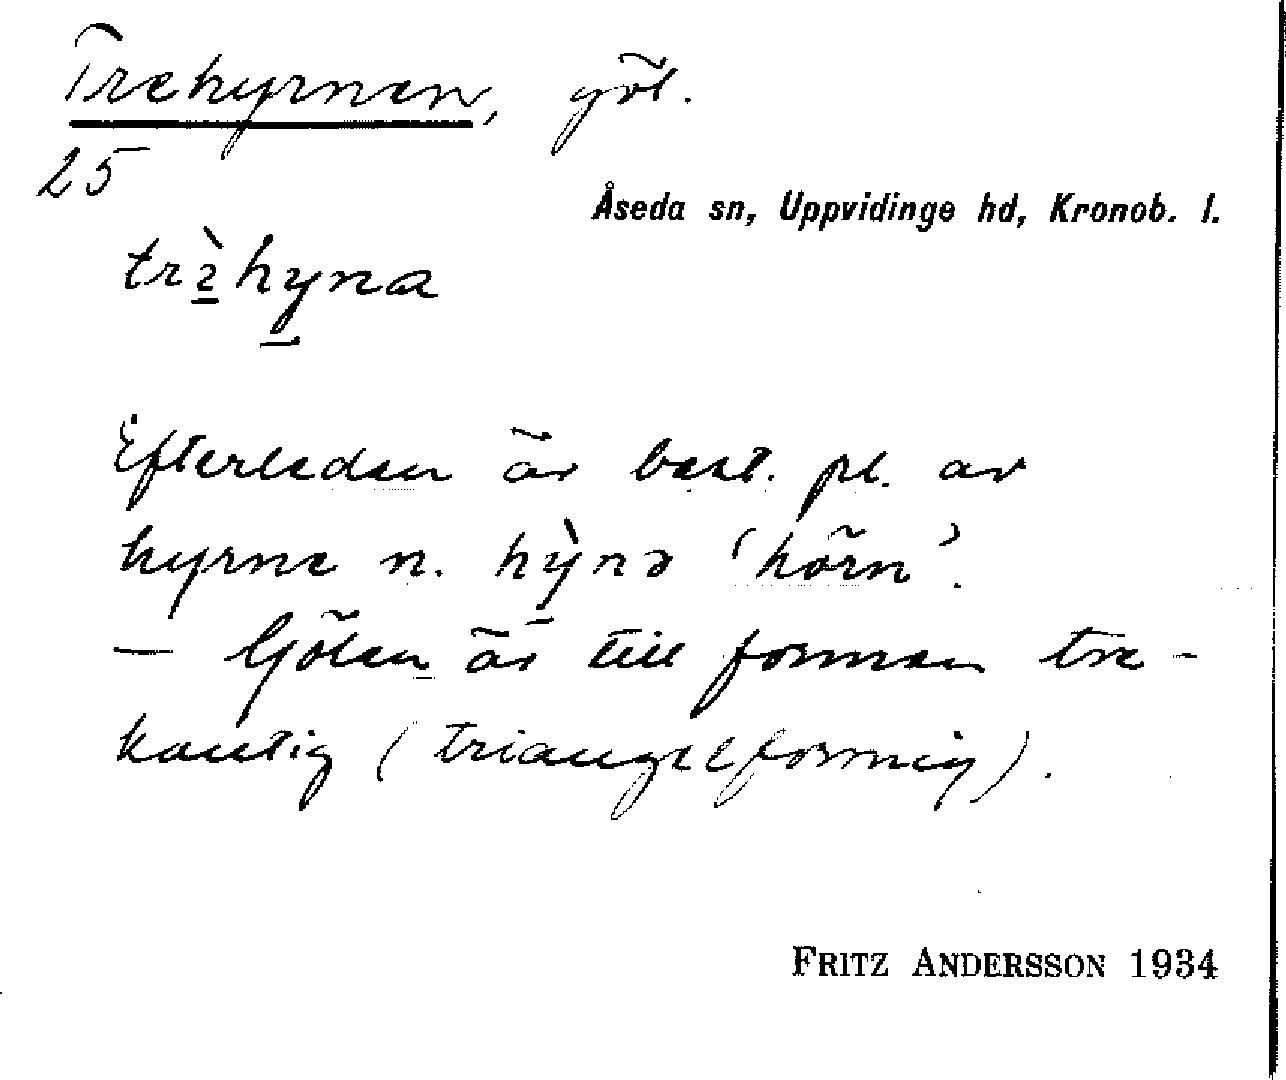 Trehyrnen, göl.
25
Åseda sn, Uppvidinge hd, Kronob. l.
trèhyna
Efterleden är best. pl. av
hyrne n. hỳnə 'hörn'.
— Gölen är till formen tre-
kantig (triangelformig).
FRITZ ANDERSSON 1934